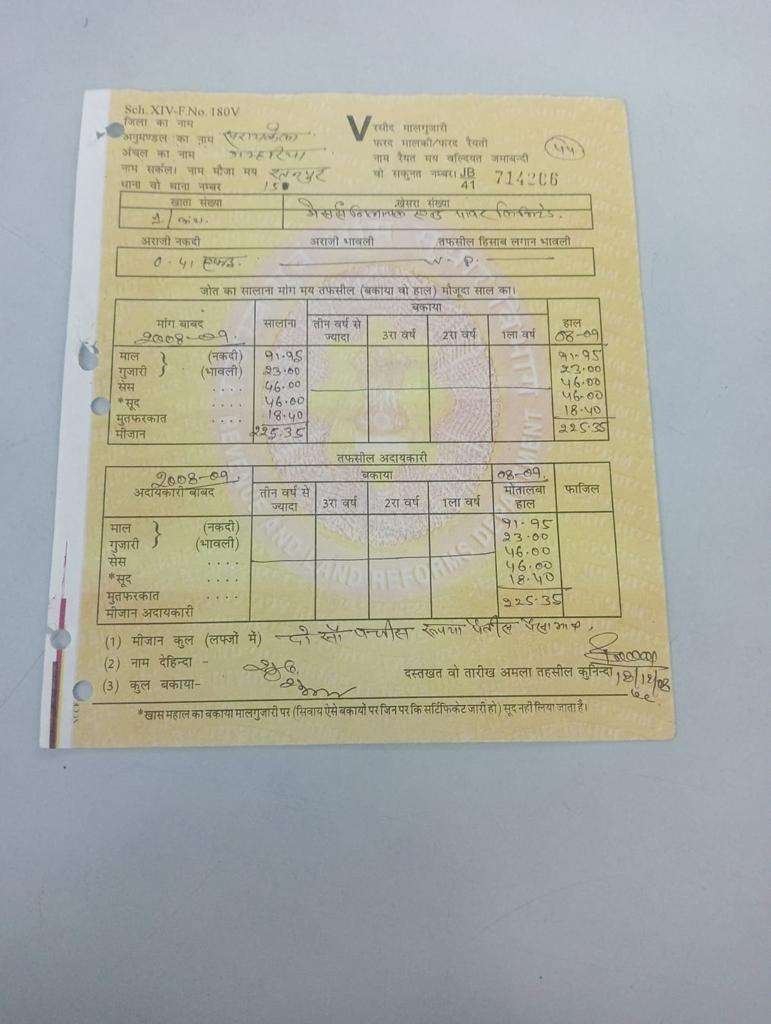 Sch. XIV-F.No. 180V
जिला का नाम
V रसीद मालगुजारी
अनुमण्डल का नाम सरायकेला
फरद मालकी/फरद रैयती
अंचल का नाम गम्हरिया
नाम रैयत मय वल्दियत जमाबन्दी
44
नाम सर्कल। नाम मौजा मय
वो सकुनत नम्बर। JB 41 714206
थाना वो थाना नम्बर
खाता संख्या खेसरा संख्या
एण्ड पावर लिमिटेड.
अराजी नकदी अराजी भावली तफसील हिसाब लगान भावली
0.41 एकड़
जोत का सालाना मांग मय तफसील (बकाया वो हाल) मौजूदा साल का।
मांग बाबद 2008-09. सालाना बकाया हाल 08-09
तीन वर्ष से ज्यादा 3रा वर्ष 2रा वर्ष 1ला वर्ष
माल (नकदी) 91.95 91.95
गुजारी (भावली) 23.00 23.00
सेस .... 46.00 46.00
*सूद .... 46.00 46.00
मुतफरकात .... 18.40 18.40
मीजान 225.35 225.35
तफसील अदायकारी
2008-09 अदायकारी बाबद बकाया 08-09. मोतालबा हाल फाजिल
तीन वर्ष से ज्यादा 3रा वर्ष 2रा वर्ष 1ला वर्ष
माल (नकदी) 91.95
गुजारी (भावली) 23.00
सेस .... 46.00
*सूद .... 46.00
मुतफरकात .... 18.40
मीजान अदायकारी 225.35
(1) मीजान कुल (लफ्जों में) - दो सौ पच्चीस रूपया पैंतीस पैसा मात्र.
(2) नाम देहिन्दा -
दस्तखत वो तारीख अमला तहसील कुनिन्दा
(3) कुल बकाया-
*खास महाल का बकाया मालगुजारी पर (सिवाय ऐसे बकायों पर जिन पर कि सर्टिफिकेट जारी हो) सूद नहीं लिया जाता है।